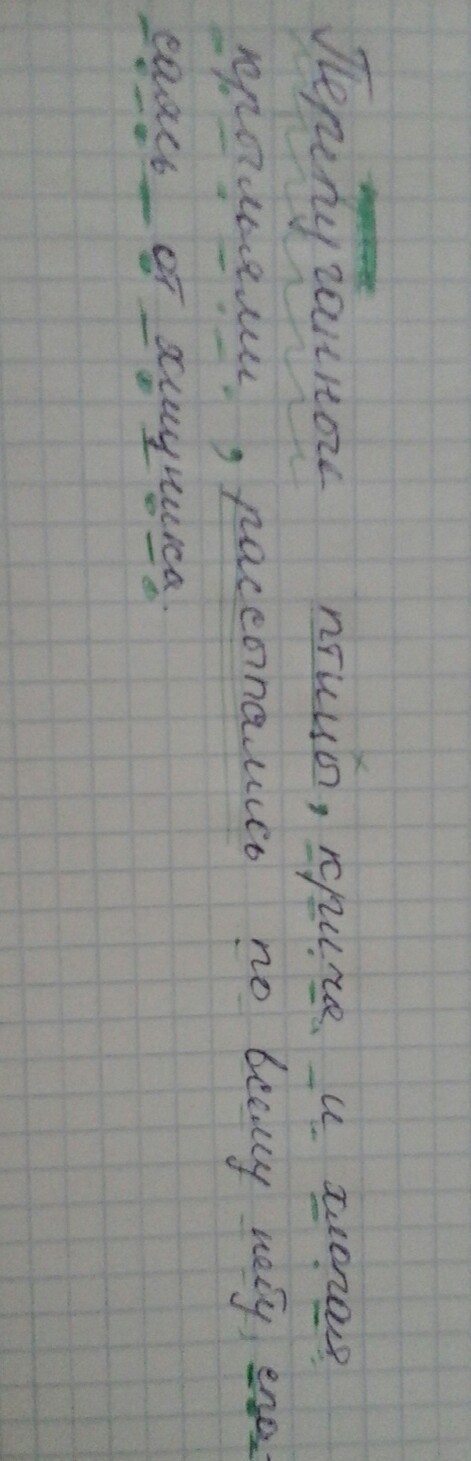 Перепуганные птицы, крича и хлопая
крыльями, рассыпались по всему небу, спа-
саясь от хищника.